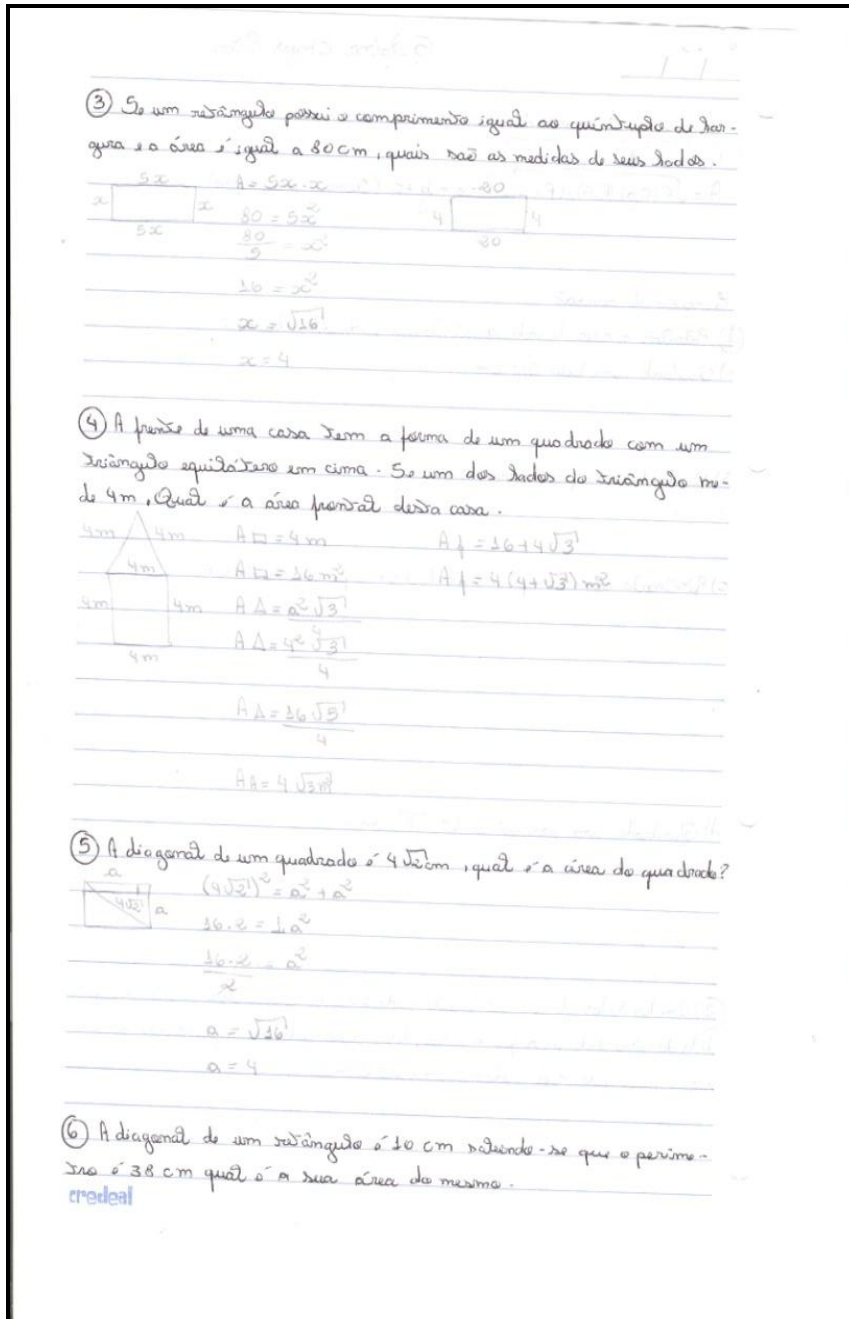 ③ Se um retângulo possui o comprimento igual ao quíntuplo de lar-
gura e a área é igual a 80cm, quais saõ as medidas de seus lados.
5x A = 5x.x 20
x x 80 = 5x² 4 4
5x 80/5 = x² 20
16 = x²
x = √16
x = 4
④ A frente de uma casa tem a forma de um quadrado com um
triângulo equilátero em cima. Se um dos lados do triângulo me-
de 4m, Qual é a área frontal desta casa.
4m 4m A□ = 4m Af = 16+4√3
4m A□ = 16m² Af = 4(4+√3)m²
4m 4m A△ = a²√3/4
4m A△ = 4²√3/4
A△ = 16√3/4
AA = 4√3m²
⑤ A diagonal de um quadrado é 4√2cm, qual é a área do quadrado?
a (4√2)² = a² + a²
4√2 a 16.2 = 1a²
16.2/2 = a²
a = √16
a = 4
⑥ A diagonal de um retângulo é 10 cm sabendo-se que o períme-
tro é 38 cm qual é a sua área do mesmo.
credeal